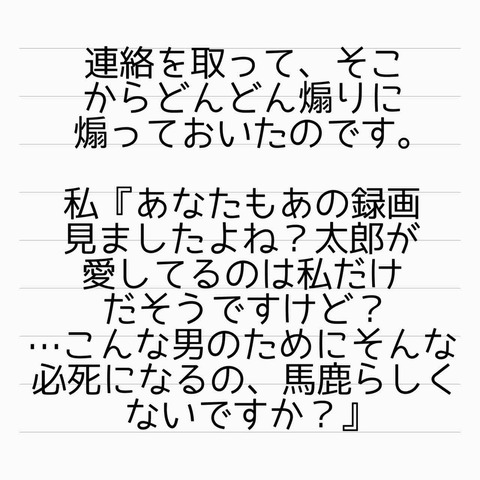 連絡を取って、そこ
からどんどん煽りに
煽っておいたのです。
私『あなたもあの録画
見ましたよね？太郎が
愛してるのは私だけ
だそうですけど？
…こんな男のためにそんな
必死になるの、馬鹿らしく
ないですか？』